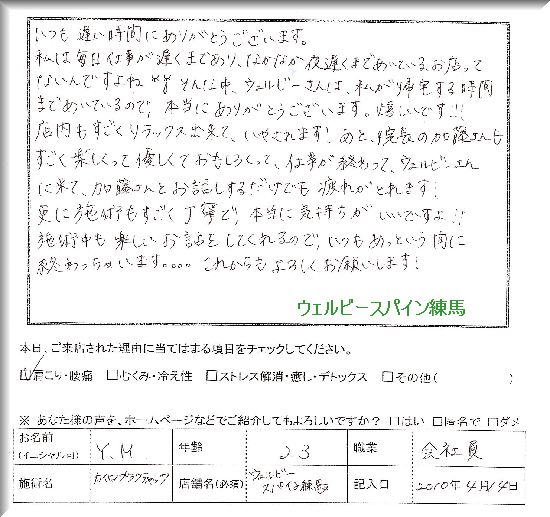 いつも遅い時間にありがとうございます。
私は毎日仕事が遅くまであり、なかなか夜遅くまであいているお店って
ないんですよね そんな中、ウェルビーさんは、私が帰宅する時間
まであいているので、本当にありがとうございます。嬉しいです!!
店内もすごくリラックス出来て、いやされます!あと、院長の加藤さんも
すごく楽しくって優しくておもしろくって、仕事が終わって、ウェルビーさん
に来て、加藤さんとお話しするだけでも疲れがとれます!
更に施術もすごく丁寧で、本当に気持ちがいいですよ!!
施術中も楽しいお話をしてくれるので、いつもあっという間に
終わっちゃいます。。。。これからもよろしくお願いします!
ウェルビースパイン練馬
本日、ご来店された理由に当てはまる項目をチェックしてください。
☑肩こり・腰痛 □むくみ・冷え性 □ストレス解消・癒し・デトックス □その他( )
※ あなた様の声を、ホームページなどでご紹介してもよろしいですか? □はい □匿名で □ダメ
お名前(イニシャル可) Y.M 年齢 23 職業 会社員
施術名 カイロプラクティック 店舗名(必須) ウェルビースパイン練馬 記入日 2010年4月14日